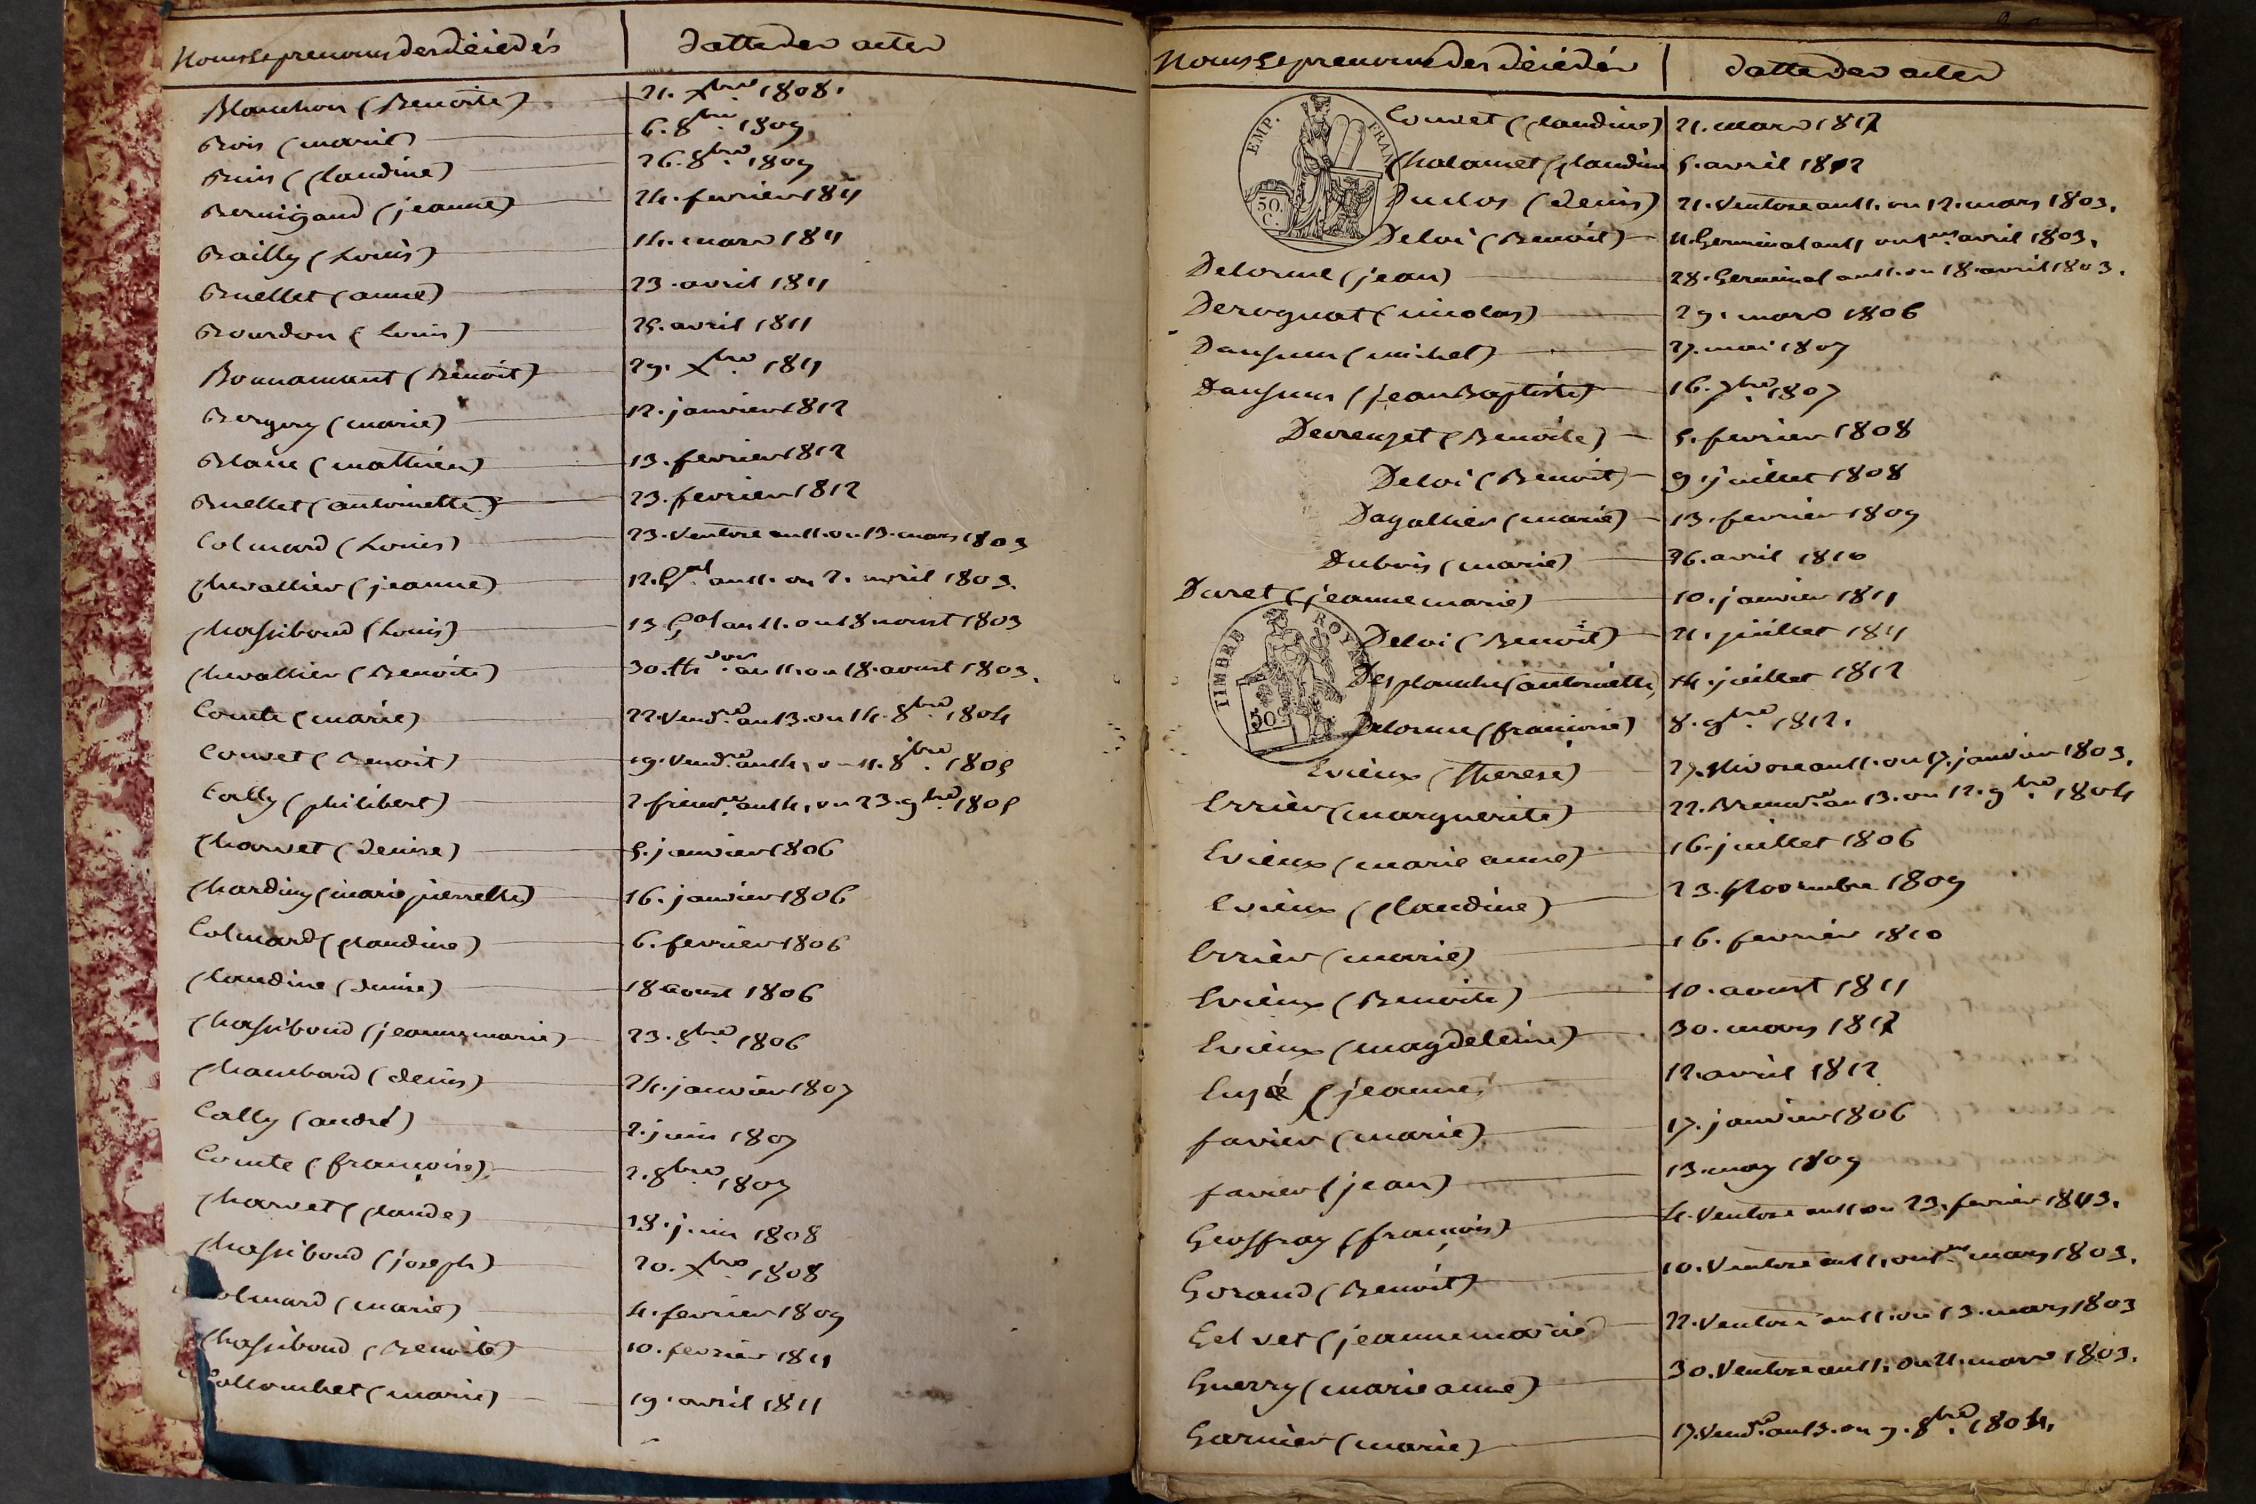 Noms et prenoms des décédés | datte des actes
Blanchon (Benoite) 21. Xbre 1808.
Bois (marie) 6. 8bre 1809
Buis (claudine) 26. 8bre 1809
Bernigaud (jeanne) 24. fevrier 1811
Bailly (Louis) 14. mars 1811
Buellet (anne) 23. avril 1811
Bourdon (Louis) 25. avril 1811
Bonnamant (Benoit) 29. Xbre 1811
Bergery (marie) 12. janvier 1812
Blanc (mathieu) 13. fevrier 1812
Buellet (antoinette) 23. fevrier 1812
Colmard (Louis) 23. Ventose an 11. ou 13. mars 1803
chevallier (jeanne) 12. Gal an 11. ou 2. avril 1803
chassiboud (Louis) 13 an 11. ou 18 aoust 1803
chevallier (Benoite) 30. thdor an 11. ou 18. aoust 1803.
Comte (marie) 22. Vendre an 13. ou 14. 8bre 1804
Couvet (Benoit) 19. Vendre an 14, ou 11. 8bre 1805
Cally (philibert) 2. frimre an 14, ou 23. 9bre 1805
charvet (denise) 5. janvier 1806
chardiny (marie pierrette) 16. janvier 1806
Colmard (claudine) 6. fevrier 1806
claudine (denise) 18 aoust 1806
chassiboud (jeanne marie) 23. 8bre 1806
chambard (denis) 24. janvier 1807
Cally (andré) 2. juin 1807
Comte (françoise) 2. 8bre 1807
charvet (claude) 18. juin 1808
chassiboud (joseph) 20. Xbre 1808
olmard (marie) 4. fevrier 1809
chassiboud (Benoite) 10. fevrier 1811
Collombet (marie) 19. avril 1811
Noms et prenoms des décédés | datte des actes
EMP. FRAN
50. C.
Couvet (claudine) 21. mars 1812
chalamet (claudine 5. avril 1812
Duclos (denis) 21. Ventose an 11. ou 12. mars 1803.
Deloi (Benoit) 11. Germinal an 11 ou 1er avril 1803.
Delorme (jean) 28. Germinal an 11. ou 18. avril 1803.
Derognat (nicolas) 29. mars 1806
Danjeun (michel) 27. mai 1807
Danjeun (jean Baptiste) 16. 7bre 1807
Devenzet (Benoite) 5. fevrier 1808
Deloi (Benoit) 9. juillet 1808
Dagallier (marie) 13. fevrier 1809
Dubois (marie) 26. avril 1810
Duret (jeanne marie) 10. janvier 1811
TIMBRE ROYAL
50
Deloi (Benoit) 21. juillet 1811
Desplanche (antoinette) 14. juillet 1812
Delorme (françoise) 8. 9bre 1812.
Evieux (therese) 27. Nivose an 11. ou 17. janvier 1803.
Errier (marguerite) 22. Brumre an 13. ou 12. 9bre 1804
Evieux (marie anne) 16. juillet 1806
Evieux (claudine) 23. Novembre 1809
Errier (marie) 16. fevrier 1810
Evieux (Benoite) 10. aoust 1811
Evieux (magdeleine) 30. mars 1812
(jeanne) 12. avril 1812
favier (marie) 17. janvier 1806
favier (jean) 13. may 1809
Geoffray (françois) 4. Ventose an 11 ou 23. fevrier 1803.
Gorand (Benoit) 10. Ventose an 11, ou 1er mars 1803.
Gelvet (jeanne marie) 22. Ventose an 11. ou 13. mars 1803
Guerry (marie anne) 30. Ventose an 11. ou 21. mars 1803.
Garnier (marie) 17. Vendre an 13. ou 9. 8bre 1804.